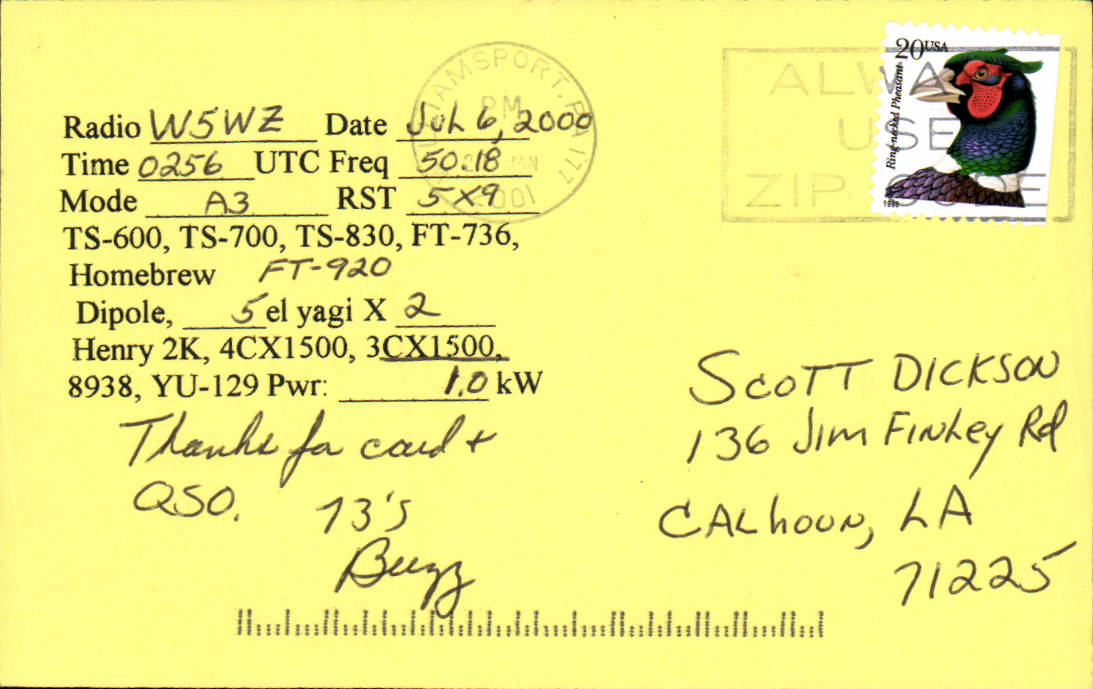 Radio W5WZ Date Jul 6, 2000
Time 0256 UTC Freq 50.18
Mode A3 RST 5X9
TS-600, TS-700, TS-830, FT-736,
Homebrew FT-920
Dipole, 5 el yagi X 2
Henry 2K, 4CX1500, 3CX1500,
8938, YU-129 Pwr: 1.0 kW
Thanks for card +
QSO. 73's
Buzz
IAMSPORT, PA 177
PM
JAN
2001
ALWAYS
USE
ZIP CODE
20 USA
Ring-necked Pheasant
1998
SCOTT DICKSON
136 Jim FINLEY Rd
CALhOUN, LA
71225